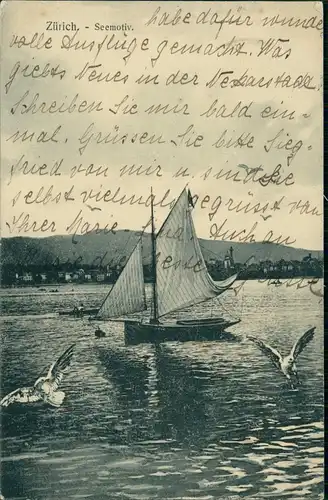 Zürich. - Seemotiv.
habe dafür wunder
volle Ausflüge gemacht. Was
giebts Neues in der Neckarstadt.
Schreiben Sie mir bald ein-
mal. Grüssen Sie bitte Sieg-
fried von mir u. sind Sie
selbst vielmals gegrüsst von
Ihrer Marie. Auch an
die